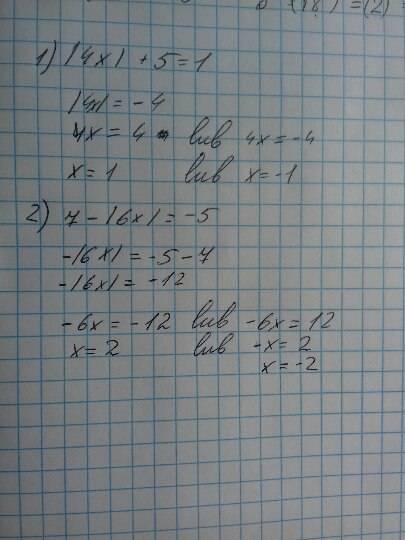 (18) = (2)
1) |4x| + 5 = 1
|4x| = -4
4x = 4 lub 4x = -4
x = 1 lub x = -1
2) 7 - |6x| = -5
-|6x| = -5 - 7
-|6x| = -12
-6x = -12 lub -6x = 12
x = 2 lub -x = 2
x = -2